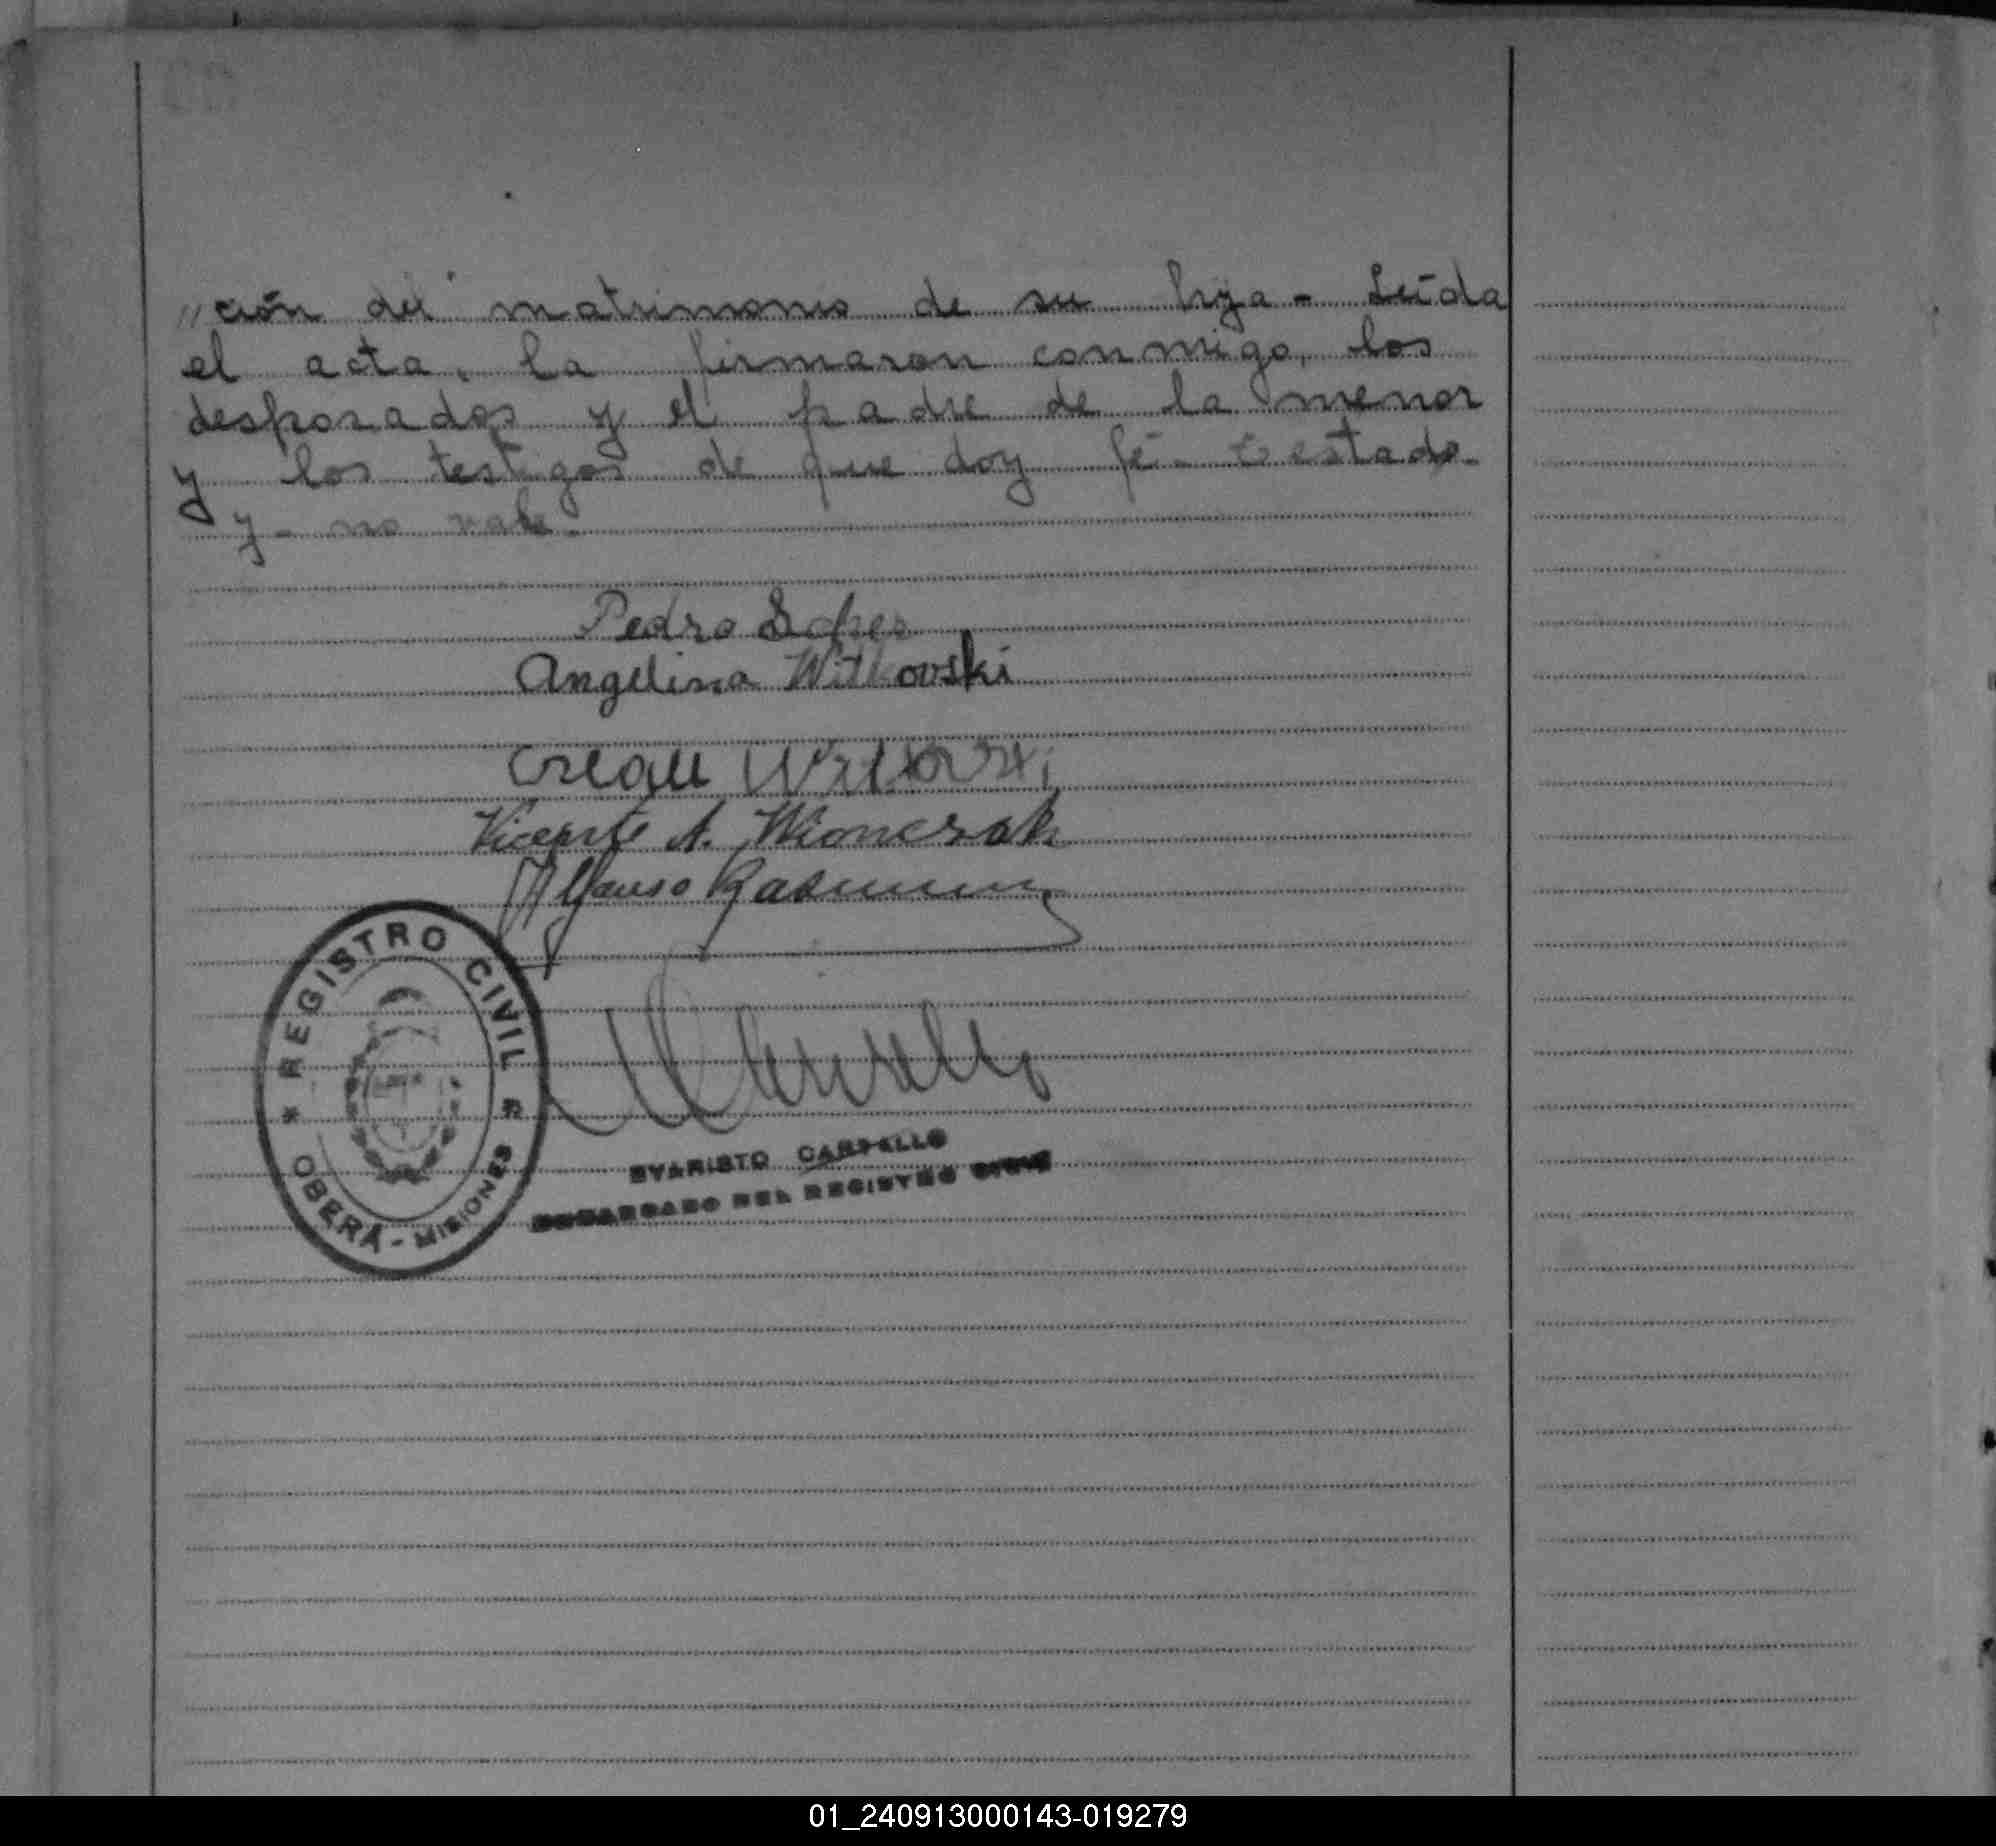 "ción del matrimonio de su hija - Leída
el acta, la firmaron conmigo, los
desposados y el padre de la menor
y los testigos de que doy fé - testado
y - no vale -
Pedro Lopes
Angelina Witkovski
Vicente A. Wionczak
Alfonso
REGISTRO CIVIL
OBERÁ - MISIONES
EVARISTO CARVALLO
ENCARGADO DEL REGISTRO CIVIL
01_240913000143-019279